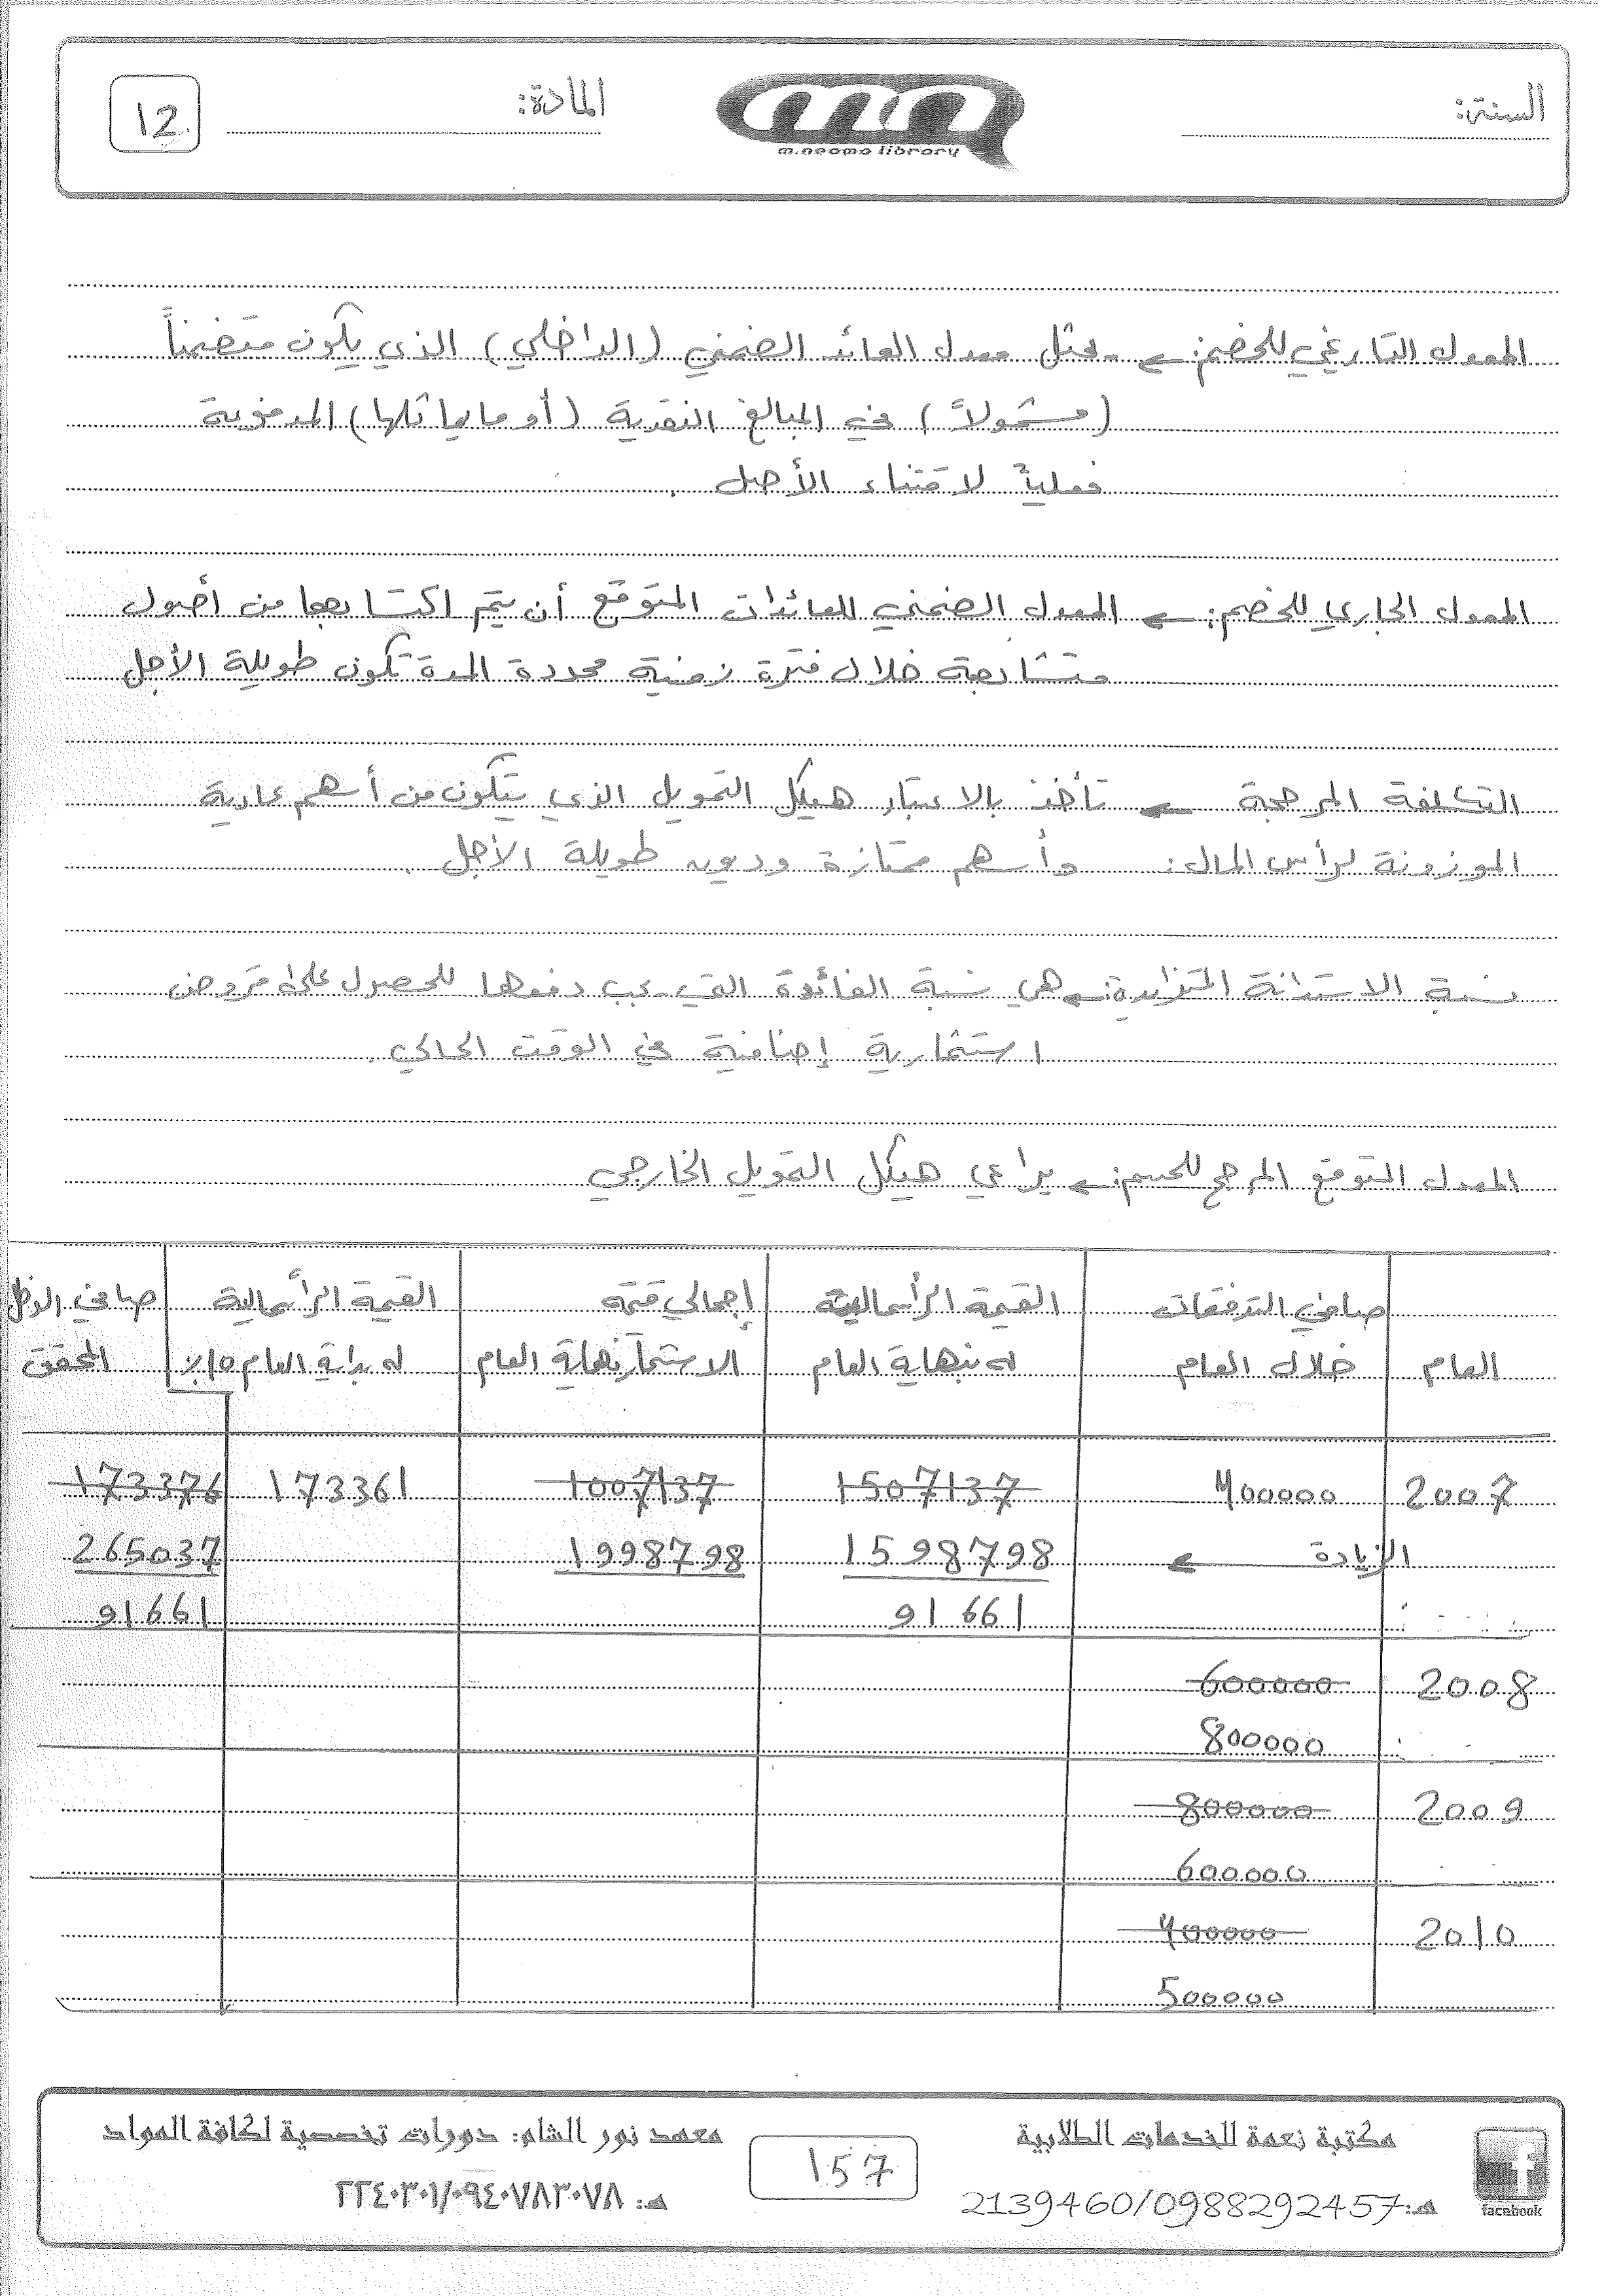 السنة:
m.neama library
المادة:
12
المعدل التاريخي للخصم: ← يمثل معدل العائد الضمني (الداخلي) الذي يكون متضمناً
(مشمولاً) في المبالغ النقدية (أو ما يماثلها) المدفوعة
فعلياً لاقتناء الأصل.
المعدل الجاري للخصم: ← المعدل الضمني للعائدات المتوقع أن يتم اكتسابها من أصول
متشابهة خلال فترة زمنية محددة المدة تكون طويلة الأجل
التكلفة المرجحة ← تأخذ بالاعتبار هيكل التمويل الذي يتكون من أسهم عادية
الموزونة لرأس المال: وأسهم ممتازة وديون طويلة الأجل.
نسبة الاستدانة المتزايدة: ← هي نسبة الفائدة التي يجب دفعها للحصول على قروض
استثمارية إضافية في الوقت الحالي.
المعدل المتوقع المرجح للحسم: ← يراعي هيكل التمويل الخارجي
صافي التدفقات القيمة الرأسمالية إجمالي قيمة القيمة الرأسمالية صافي الدخل
العام خلال العام له بنهاية العام الاستثمار نهاية العام له بداية العام 10٪ المحقق
2007 400000 1507137 1007137 173361 173376
الزيادة ← 1598798 1998798 265037
91661 91661
2008 600000
800000
2009 800000
600000
2010 400000
500000
مكتبة نعمة للخدمات الطلابية
هـ: 2139460/0988292457
facebook
157
معهد نور الشام: دورات تخصصية لكافة المواد
هـ: ٢٢٤٠٣٠١/٠٩٤٠٧٨٣٠٧٨